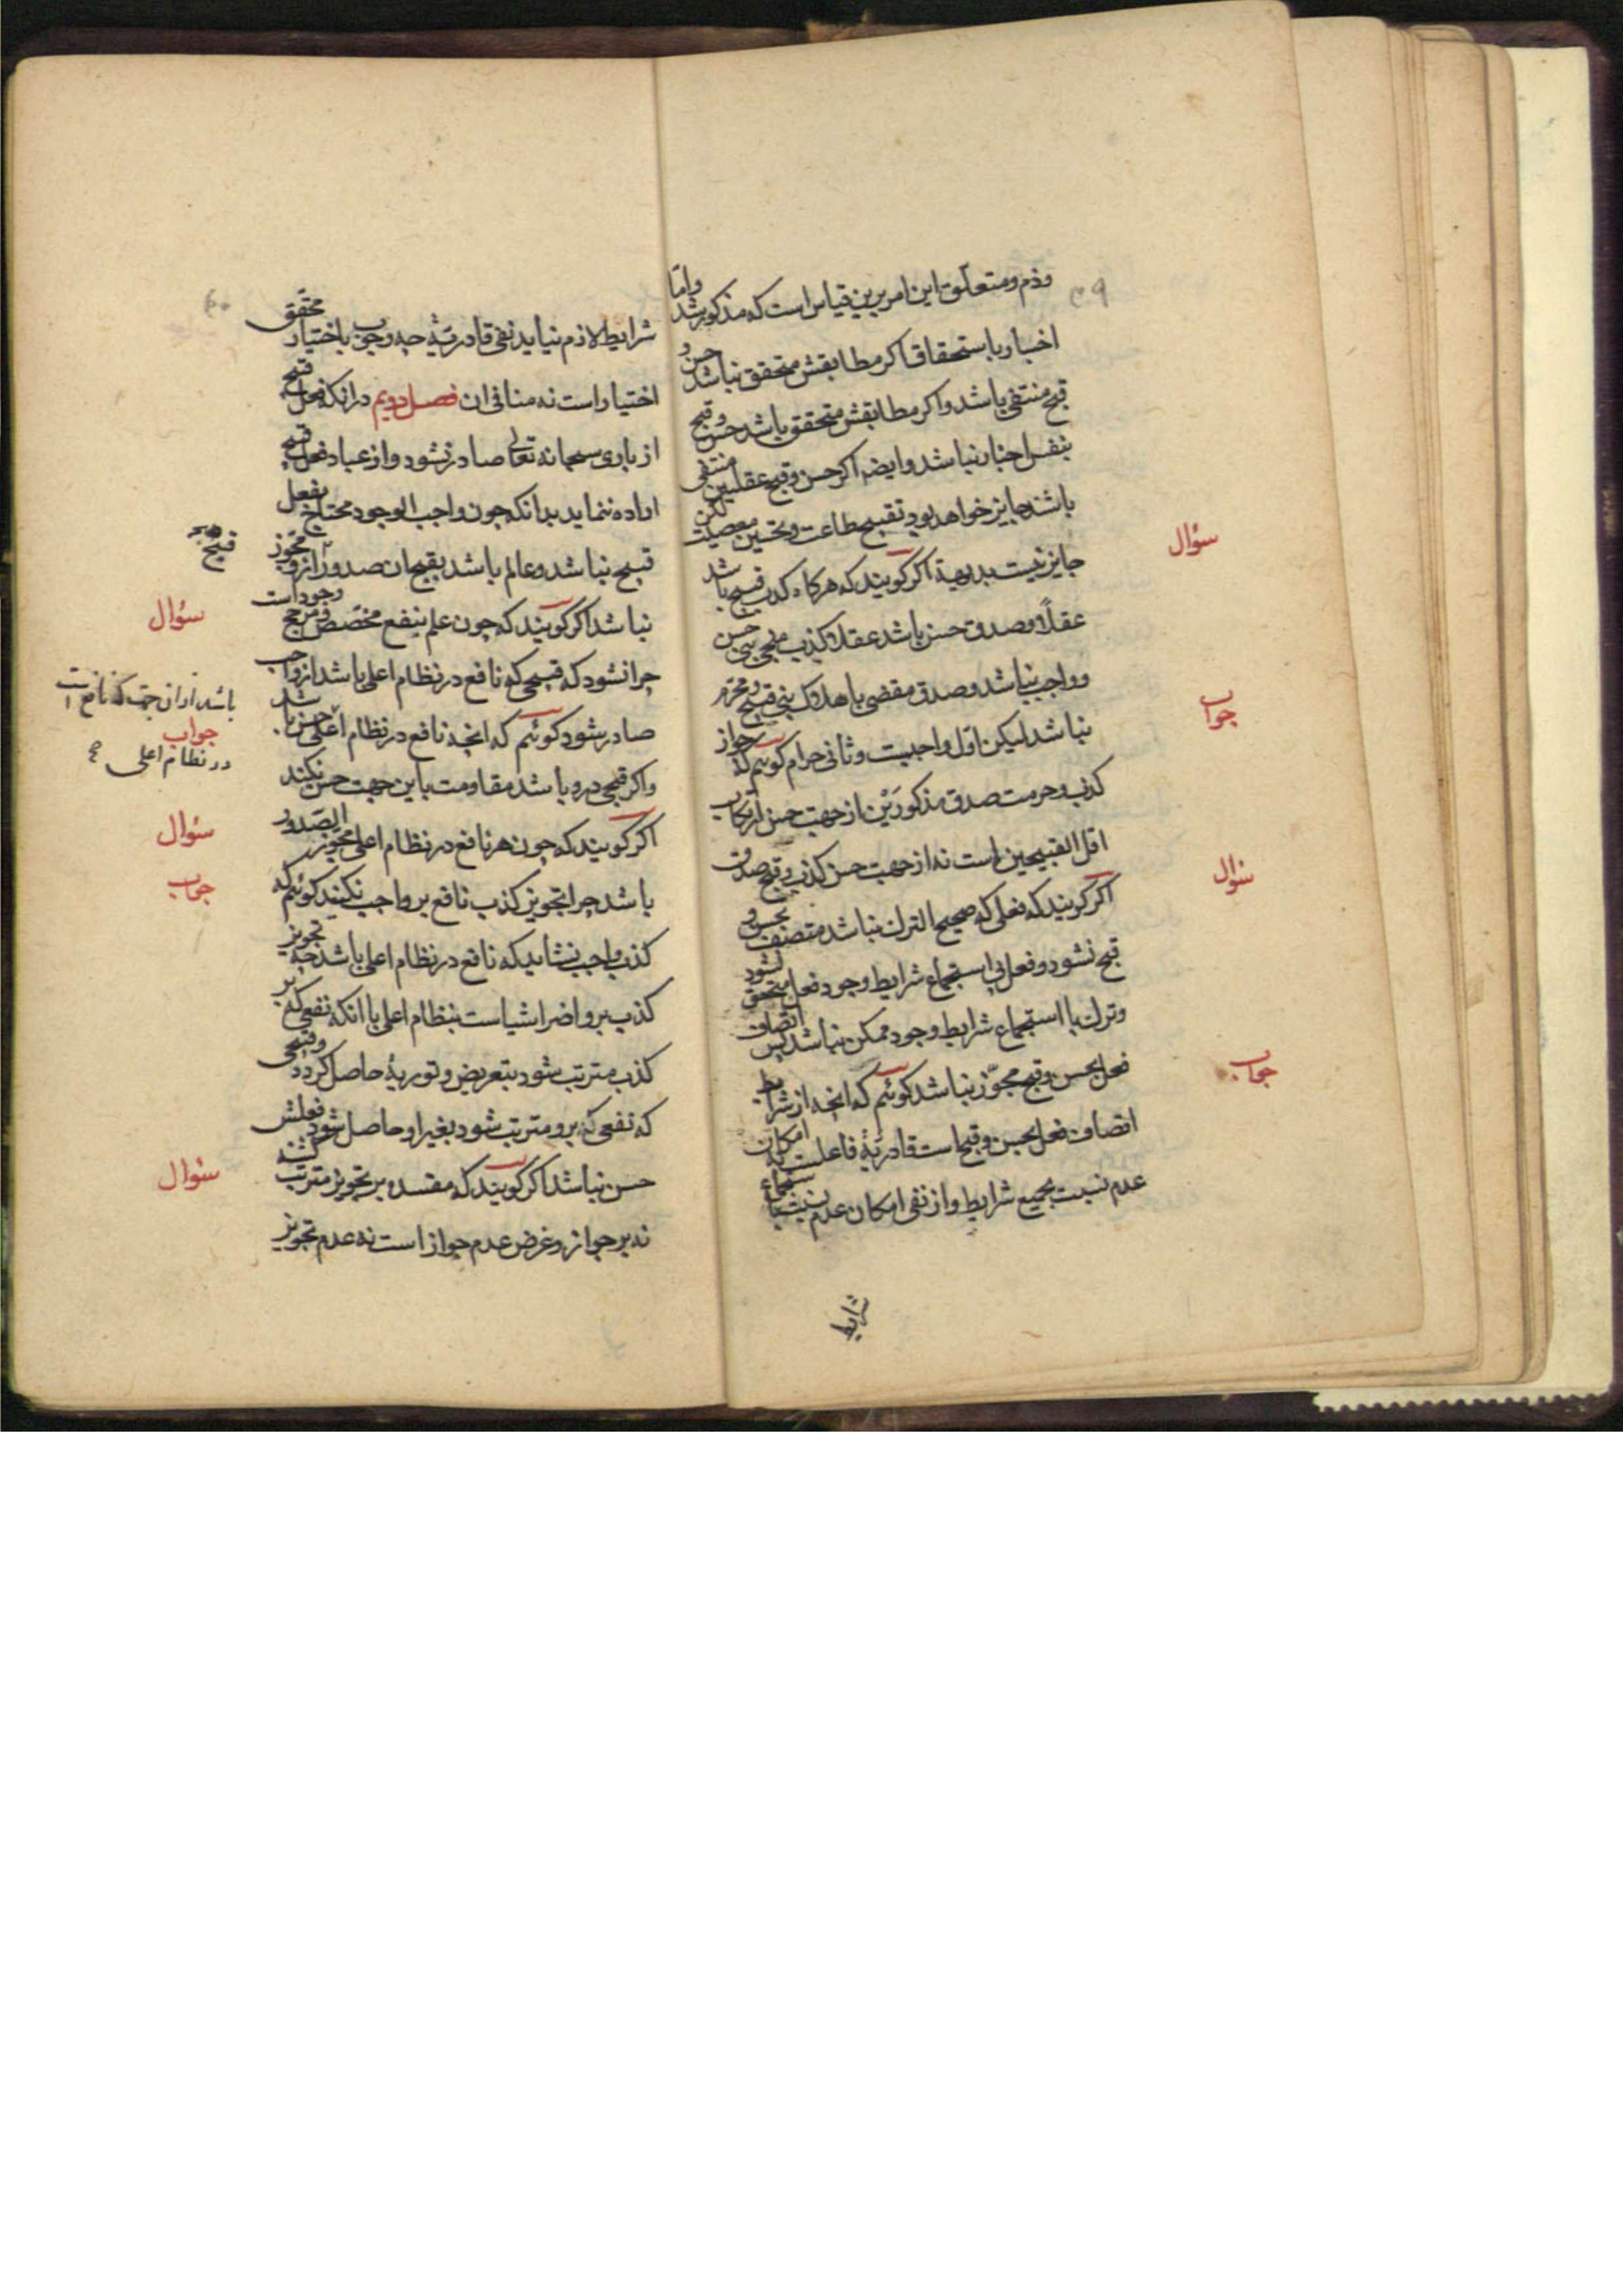 وذم ومتعلق این امر برین قیاس است که مذکور شد واما
اخبار باستحقاق اکر مطابقش متحقق نباشد حسن و
قبح منتفی باشد واکر مطابقش متحقق باشد حسن وقبح
بنفس اخبار نباشد وایضه اکر حسن وقبح عقلیین منتفی
باشند جایز خواهد بود تقبیح طاعت وتحسین معصیت لکن
جایز نیست بدیهة اکر کویند که هرکاه کذب قبیح باشد
سؤال
عقلاً وصدق حسن باشد عقلا کذب منجی نبی حسن
وواجب نباشد وصدق مقضی باهلاک نبی قبیح ومحرم
جواب
نباشد لیکن اول واجبست وثانی حرام کوئیم که جواز
کذب وحرمت صدق مذکورین از جهت حسن ارتکاب
اقل القبیحین است نه از جهت حسن کذب وقبح صدق
سؤال
اکر کویند که فعلی که صحیح الترک نباشد متصف بحسن و
قبح نشود وفعل بی استجماع شرایط وجود فعل متحقق نشود
وترک با استجماع شرایط وجود ممکن نباشد پس اتصاف
فعل بحسن وقبح مجوز نباشد کوئیم که انچه از شرایط
جواب
اتصاف فعل بحسن وقبح است قادریة فاعلست به امکان
عدم نسبت بجمیع شرایط واز نفی امکان عدم نسبت باستجماع
شرایط
شرایط لازم نیاید نفی قادریة چه وجوب باختیار محقق
اختیار است نه منافی ان فصل دویم در انکه فعل قبیح
از باری سبحانه تعالی صادر نشود واز عباد فعل قبیح
اراده ننماید بدانکه چون واجب الوجود محتاج بفعل
قبیح نباشد وعالم باشد بقبح ان صدور از و مجوز
قبیح
نباشد اکر کویند که چون علم بنفع مخصص ومرجح وجود است
سؤال
چرا نشود که قبیحی که نافع در نظام اعلی باشد از واجب
صادر شود کوئیم که انچه نافع در نظام اعلی حسن باشد
باشد از ان جهت که نافع است
جواب
در نظام اعلی
واکر قبحی درو باشد مقاومت باین جهت حسن نکند
اکر کویند که چون هر نافع در نظام اعلی مجوز الصدور
سؤال
باشد چرا تجویز کذب نافع بر واجب نکنند کوئیم که
جواب
کذب واجب نشاید که نافع در نظام اعلی باشد چه تجویز
کذب برو اضر اشیاست بنظام اعلی با انکه نفعی که بر
کذب مترتب شود بتعریض وتوریة حاصل کردد وقبیحی
که نفعی که برو مترتب شود بغیر او حاصل شود فعلش
حسن نباشد اکر کویند که مفسده بر تجویز مترتب کشته
سؤال
نه بر جواز وغرض عدم جواز است نه عدم تجویز